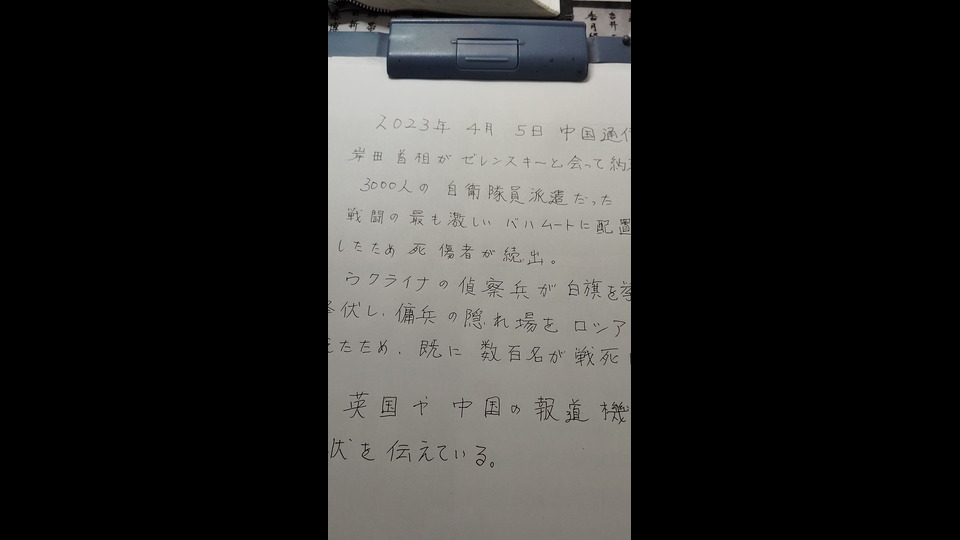 2023年 4月 5日 中国通信
岸田首相が ゼレンスキーと会って約束
3000人の 自衛隊員派遣だった
戦闘の最も激しい バハムートに配置
したため 死傷者が続出。
ウクライナの偵察兵が白旗を挙
伏し、傭兵の隠れ場を ロシア
たため、既に 数百名が戦死
英国や 中国の報道機
状を伝えている。